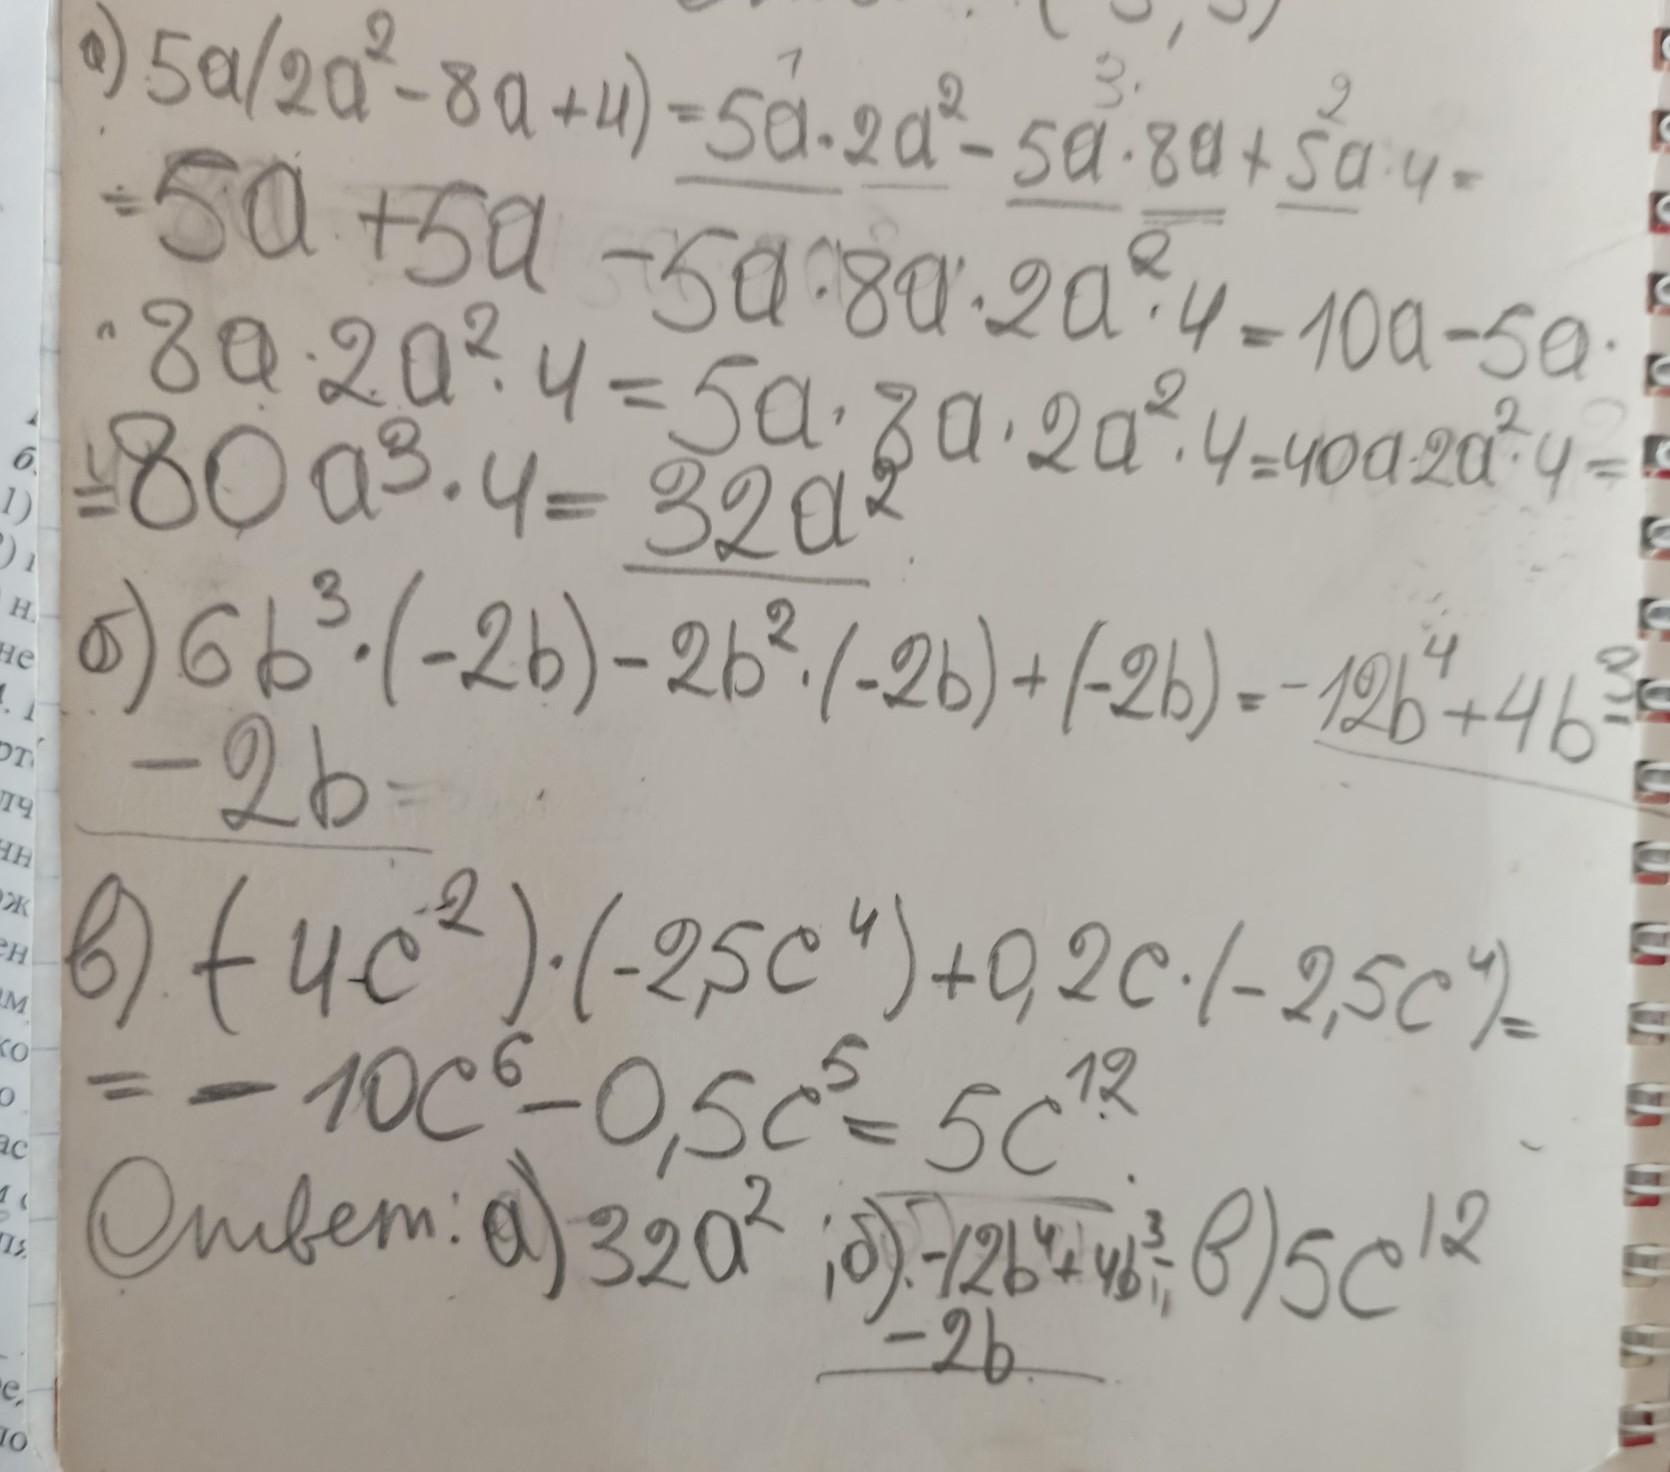 а) 5a(2a²-8a+4)=5a·2a²-5a·8a+5a·4=
1 3 2
=5a+5a-5a·8a·2a²·4=10a-5a·
·8a·2a²·4=5a·8a·2a²·4=40a·2a²·4=
=80a³·4=32a²
б) 6b³·(-2b)-2b²·(-2b)+(-2b)=-12b⁴+4b³-
-2b=
в) (-4c²)·(-2,5c⁴)+0,2c·(-2,5c⁴)=
=-10c⁶-0,5c⁵=5c¹²
Ответ: а) 32a²; б) -12b⁴+4b³- в) 5c¹²
-2b